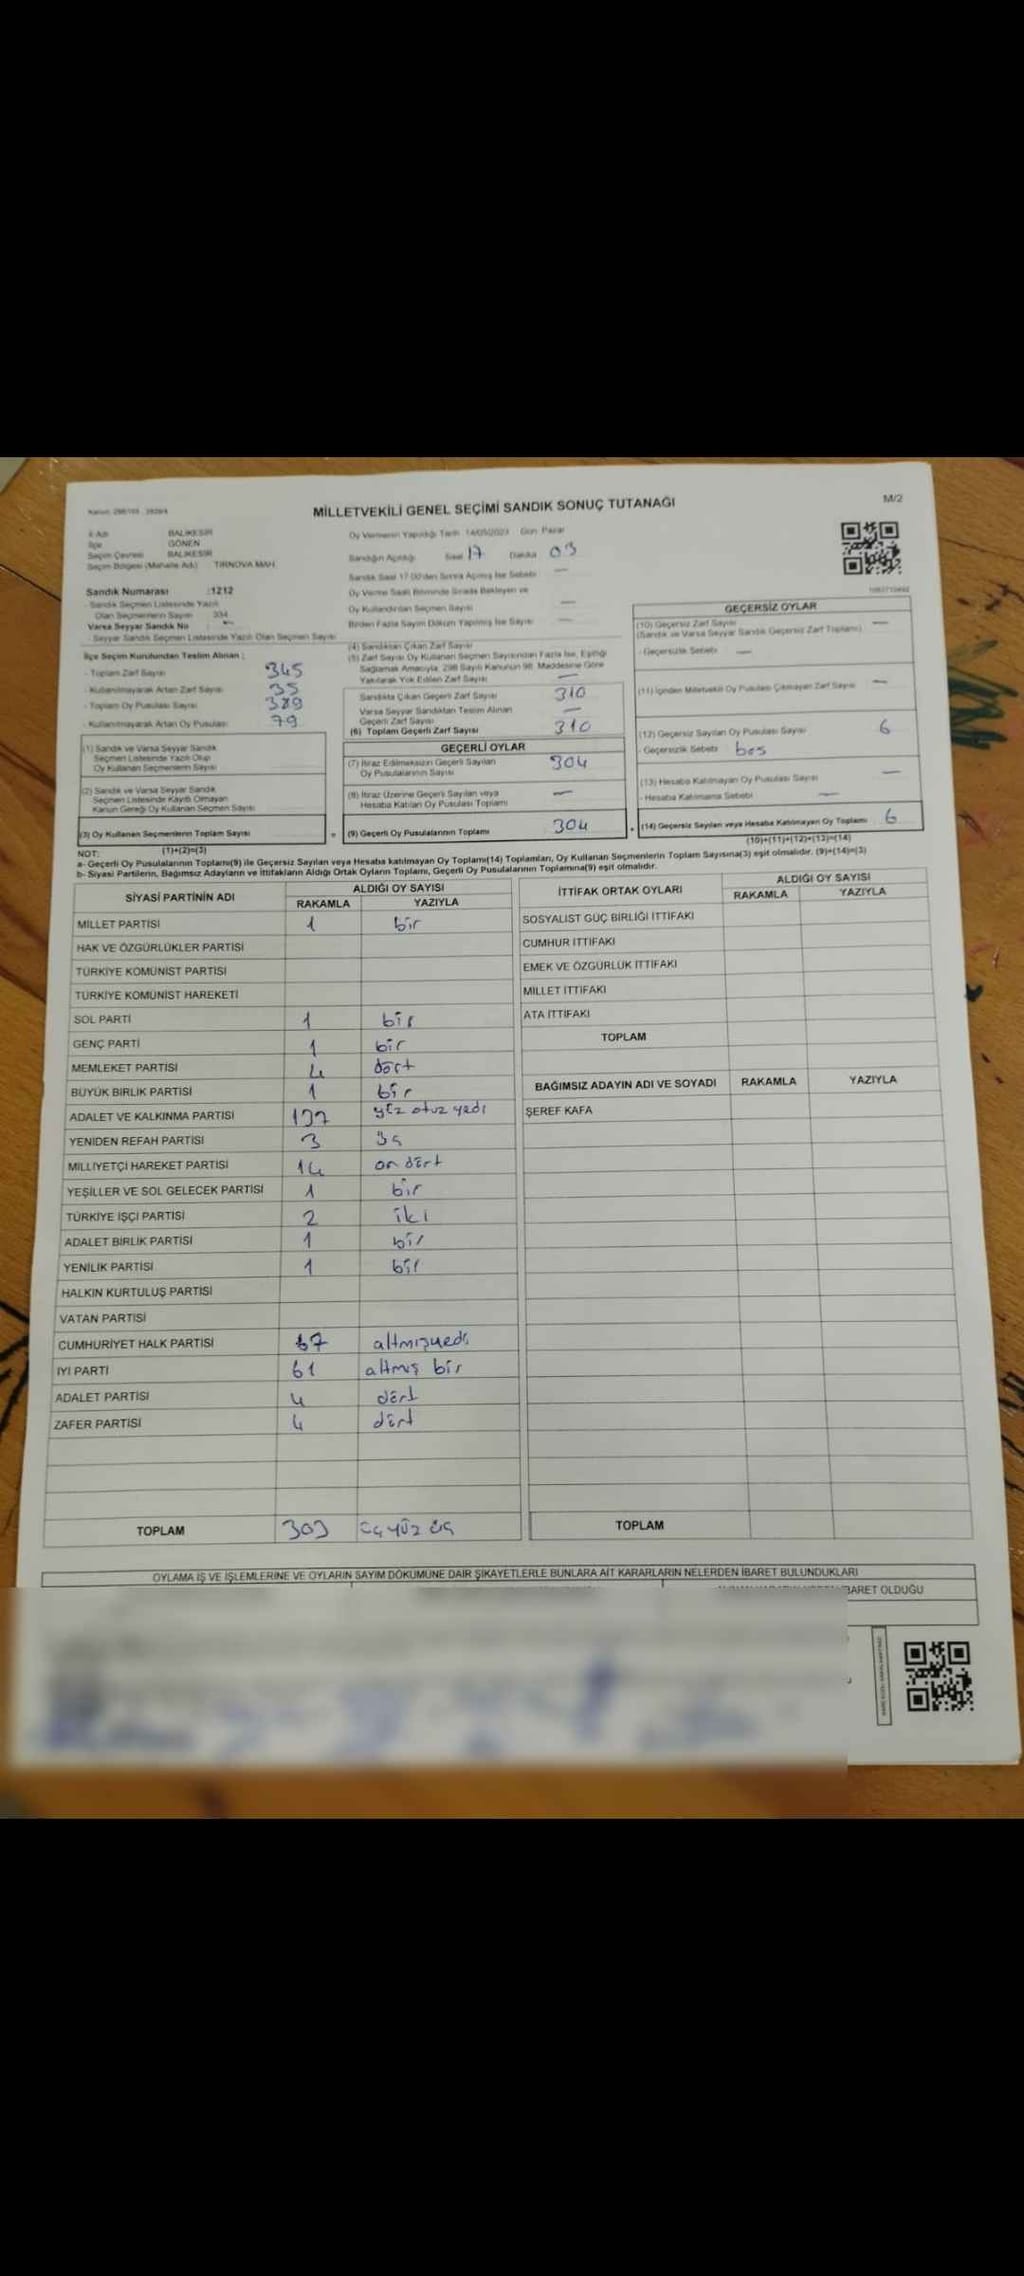 M/2
MİLLETVEKİLİ GENEL SEÇİMİ SANDIK SONUÇ TUTANAĞI
İl Adı BALIKESİR
İlçe GÖNEN
Seçim Çevresi BALIKESİR
Seçim Bölgesi (Mahalle Adı) TIRNOVA MAH.
Sandık Numarası :1212
- Sandık Seçmen Listesinde Yazılı
Olan Seçmenlerin Sayısı 334
Varsa Seyyar Sandık No : -
- Seyyar Sandık Seçmen Listesinde Yazılı Olan Seçmen Sayısı
İlçe Seçim Kurulundan Teslim Alınan :
- Toplam Zarf Sayısı 345
- Kullanılmayarak Artan Zarf Sayısı 35
- Toplam Oy Pusulası Sayısı 389
- Kullanılmayarak Artan Oy Pusulası 79
(1) Sandık ve Varsa Seyyar Sandık
Seçmen Listesinde Yazılı Olup
Oy Kullanan Seçmenlerin Sayısı
(2) Sandık ve Varsa Seyyar Sandık
Seçmen Listesinde Kayıtlı Olmayan
Kanun Gereği Oy Kullanan Seçmen Sayısı
(3) Oy Kullanan Seçmenlerin Toplam Sayısı =
(1)+(2)=(3)
Oy Vermenin Yapıldığı Tarih 14/05/2023 Gün Pazar
Sandığın Açıldığı Saat 17 Dakika 03
Sandık Saat 17.00'den Sonra Açılmış İse Sebebi —
Oy Verme Saati Bitiminde Sırada Bekleyen ve
Oy Kullandırılan Seçmen Sayısı —
Birden Fazla Sayım Döküm Yapılmış İse Sayısı —
(4) Sandıktan Çıkan Zarf Sayısı
(5) Zarf Sayısı Oy Kullanan Seçmen Sayısından Fazla İse, Eşitliği
Sağlamak Amacıyla, 298 Sayılı Kanunun 98. Maddesine Göre
Yakılarak Yok Edilen Zarf Sayısı —
Sandıkta Çıkan Geçerli Zarf Sayısı 310
Varsa Seyyar Sandıktan Teslim Alınan
Geçerli Zarf Sayısı —
(6) Toplam Geçerli Zarf Sayısı 310
GEÇERLİ OYLAR
(7) İtiraz Edilmeksizin Geçerli Sayılan
Oy Pusulalarının Sayısı 304
(8) İtiraz Üzerine Geçerli Sayılan veya
Hesaba Katılan Oy Pusulası Toplamı —
(9) Geçerli Oy Pusulalarının Toplamı 304 +
GEÇERSİZ OYLAR
(10) Geçersiz Zarf Sayısı —
(Sandık ve Varsa Seyyar Sandık Geçersiz Zarf Toplamı)
- Geçersizlik Sebebi —
(11) İçinden Milletvekili Oy Pusulası Çıkmayan Zarf Sayısı —
(12) Geçersiz Sayılan Oy Pusulası Sayısı 6
- Geçersizlik Sebebi bos
(13) Hesaba Katılmayan Oy Pusulası Sayısı —
- Hesaba Katılmama Sebebi —
(14) Geçersiz Sayılan veya Hesaba Katılmayan Oy Toplamı 6
(10)+(11)+(12)+(13)=(14)
NOT:
a- Geçerli Oy Pusulalarının Toplamı(9) ile Geçersiz Sayılan veya Hesaba katılmayan Oy Toplamı(14) Toplamları, Oy Kullanan Seçmenlerin Toplam Sayısına(3) eşit olmalıdır. (9)+(14)=(3)
b- Siyasi Partilerin, Bağımsız Adayların ve İttifakların Aldığı Ortak Oyların Toplamı, Geçerli Oy Pusulalarının Toplamına(9) eşit olmalıdır.
SİYASİ PARTİNİN ADI ALDIĞI OY SAYISI
RAKAMLA YAZIYLA
MİLLET PARTİSİ 1 bir
HAK VE ÖZGÜRLÜKLER PARTİSİ
TÜRKİYE KOMÜNİST PARTİSİ
TÜRKİYE KOMÜNİST HAREKETİ
SOL PARTİ 1 bir
GENÇ PARTİ 1 bir
MEMLEKET PARTİSİ 4 dört
BÜYÜK BİRLİK PARTİSİ 1 bir
ADALET VE KALKINMA PARTİSİ 137 yüz otuz yedi
YENİDEN REFAH PARTİSİ 3 üç
MİLLİYETÇİ HAREKET PARTİSİ 14 on dört
YEŞİLLER VE SOL GELECEK PARTİSİ 1 bir
TÜRKİYE İŞÇİ PARTİSİ 2 iki
ADALET BİRLİK PARTİSİ 1 bir
YENİLİK PARTİSİ 1 bir
HALKIN KURTULUŞ PARTİSİ
VATAN PARTİSİ
CUMHURİYET HALK PARTİSİ 67 altmışyedi
İYİ PARTİ 61 altmış bir
ADALET PARTİSİ 4 dört
ZAFER PARTİSİ 4 dört
TOPLAM 303 üçyüz üç
İTTİFAK ORTAK OYLARI ALDIĞI OY SAYISI
RAKAMLA YAZIYLA
SOSYALİST GÜÇ BİRLİĞİ İTTİFAKI
CUMHUR İTTİFAKI
EMEK VE ÖZGÜRLÜK İTTİFAKI
MİLLET İTTİFAKI
ATA İTTİFAKI
TOPLAM
BAĞIMSIZ ADAYIN ADI VE SOYADI RAKAMLA YAZIYLA
ŞEREF KAFA
TOPLAM
OYLAMA İŞ VE İŞLEMLERİNE VE OYLARIN SAYIM DÖKÜMÜNE DAİR ŞİKAYETLERLE BUNLARA AİT KARARLARIN NELERDEN İBARET BULUNDUKLARI
BARET OLDUĞU